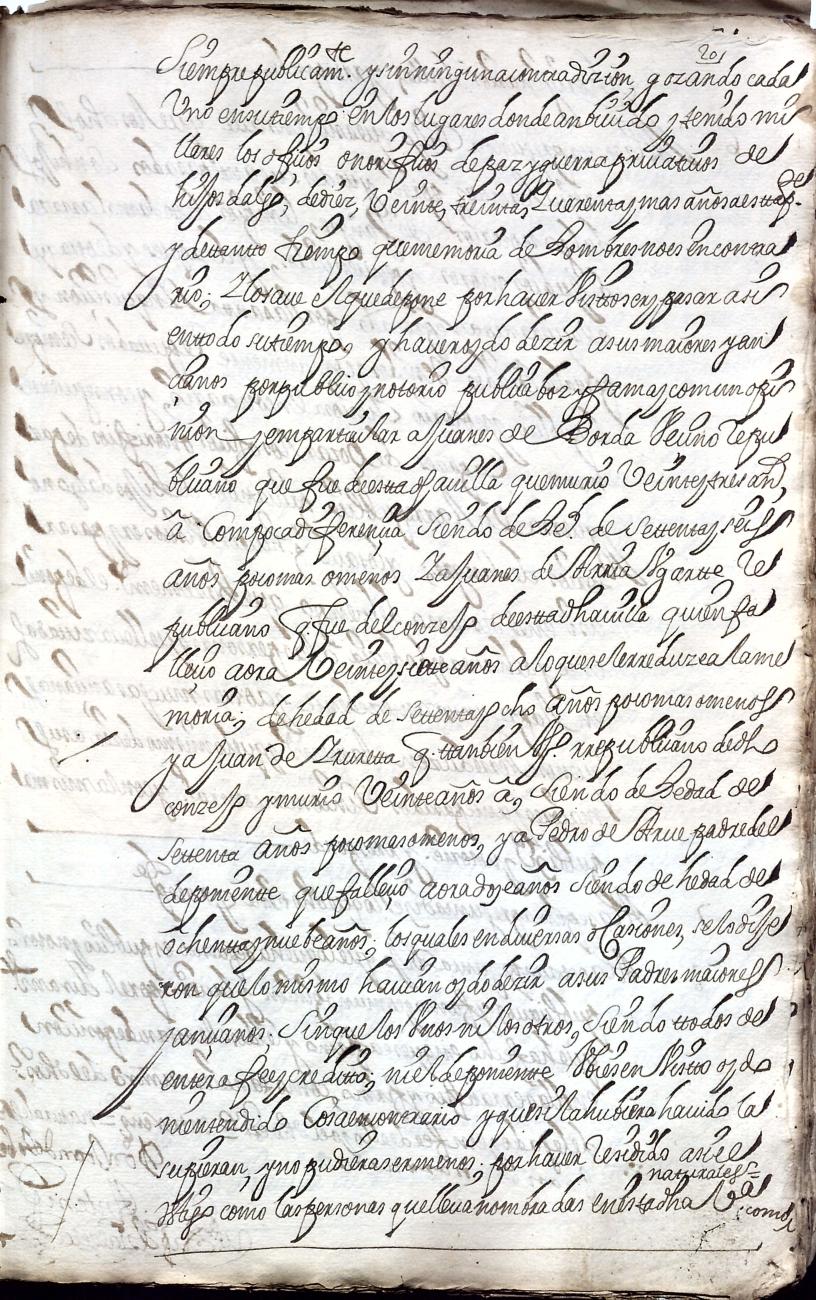 201
Siempre publicamte. y sin ninguna contradizion, gozando cada
Uno en su tiempo en los lugares donde an viuido y tenido mi
llares los ofiçios onorificos de paz y guerra priuatiuos de
hijos dalgo, de diez, Veinte, treinta, quarenta y mas años a esta pte.
y de tanto tiempo que memoria de hombres no es en contra
rio; Y lo saue el que depone por hauer Visto ser y pasar asi
en todo su tiempo, y hauer oydo dezir a sus maiores y an
çianos por publico y notorio publica boz y fama y comun opi
nion y en particular a Juanes de Borda Vecino repu
blicano que fue de esta dha villa que murio Veinte y tres añs,
â Com poca diferençia siendo de he.d de settenta y seis
años poco mas o menos Y a Juanes de Arria Ygartte re
publicano q. fue del conzejo de esta dha villa quien fa
lleçio aora Veinte y siette años a lo que se le rreduze a la me
moria; de hedad de settenta y ocho años poco mas o menos
y a Juan de Yrureta q. ttanbien fue rrepublicano de dho
conzejo y murio Veinte años â, siendo de hedad de
settenta años poco mas o menos, y a Pedro de Arrue padre del
deponiente que falleçio aora doze años siendo de hedad de
ochenta y nuebe años; los quales en diuersas ocasiones, se lo dije
ron que lo mismo hauian oydo dezir a sus Padres maiores
y ançianos. Sin que los Unos ni los otros, siendo ttodos de
entera fee y creditto; ni el deponiente Vbiesen Visto oydo
ni entendido Cosa en contrario y que si la hubiera hauido la
supieran, y no pudiera ser menos; por hauer residido asi el
naturales
ttgo como las personas que lleua nombradas en esta dha Va. como